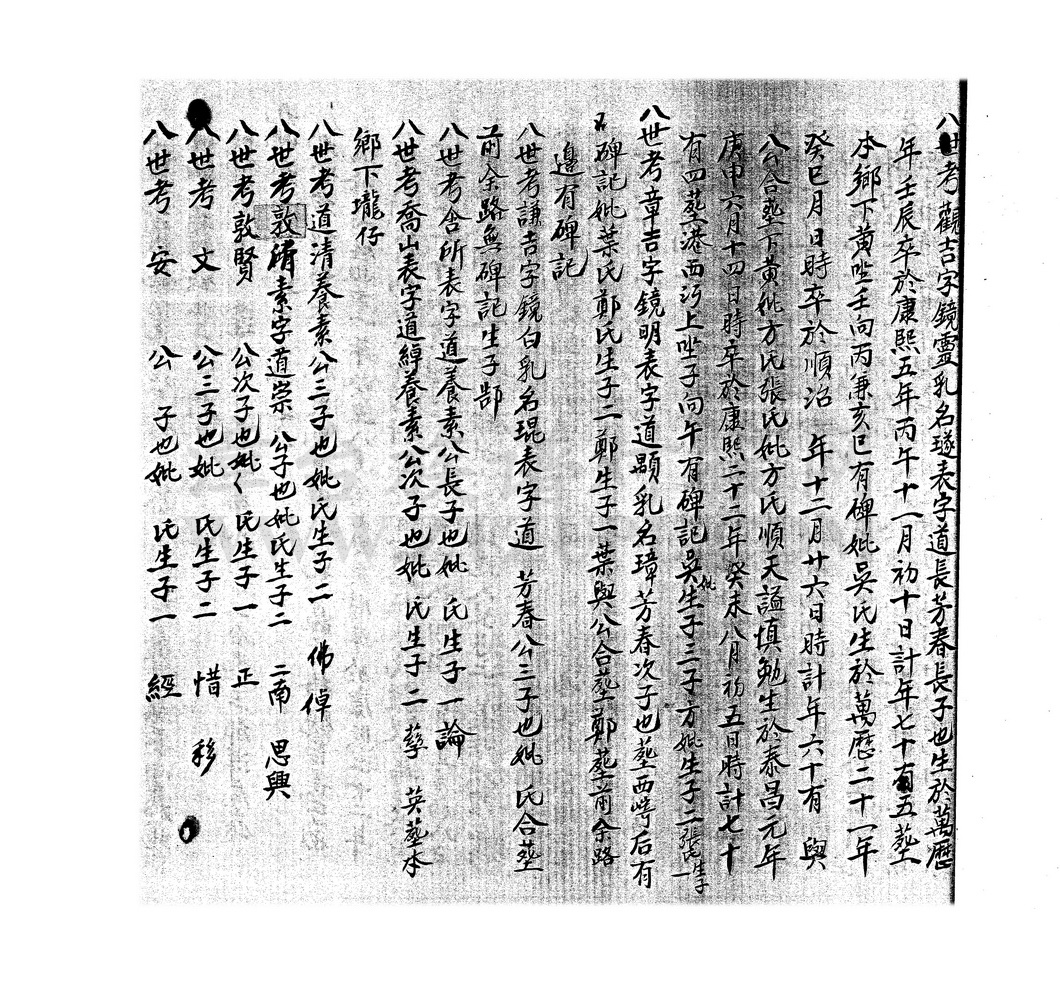 八世考觀吉字鏡靈乳名璲表字道長芳春長子也生於萬曆
年壬辰卒於康熙五年丙午十一月初十日計年七十有五塟
本鄉下黃坐壬向丙兼亥巳有碑妣吳氏生於萬曆二十一年
癸巳月日時卒於順治 年十二月廿六日時計年六十有 與
公合塟下黃妣方氏張氏妣方氏順天謚慎勉生於泰昌元年
庚申六月十四日時卒於康熙二十二年癸未八月初五日時計七十
有四塟港西沔上坐子向午有碑記吳妣生子三子方妣生子二張氏生子一
八世考章吉字鏡明表字道顯乳名璋芳春次子也塟西崎后有
石碑記妣葉氏鄭氏生子二鄭生子一葉與公合塟鄭塟前余路
邊有碑記
八世考謙吉字鏡白乳名琨表字道 芳春公三子也妣 氏合塟
前余路無碑記生子郜
八世考含所表字道養素公長子也妣 氏生子一論
八世考喬山表字道綽養素公次子也妣 氏生子二 孳 英塟本
鄉下瓏仔
八世考道清養素公三子也妣氏生子二 佛 倬
八世考敦清素字道崇 公子也妣氏生子二 二南 思興
八世考敦賢 公次子也妣 氏生子一 正
八世考 文 公三子也妣 氏生子二 惜 移
八世考 安 公 子也妣 氏生子一 經